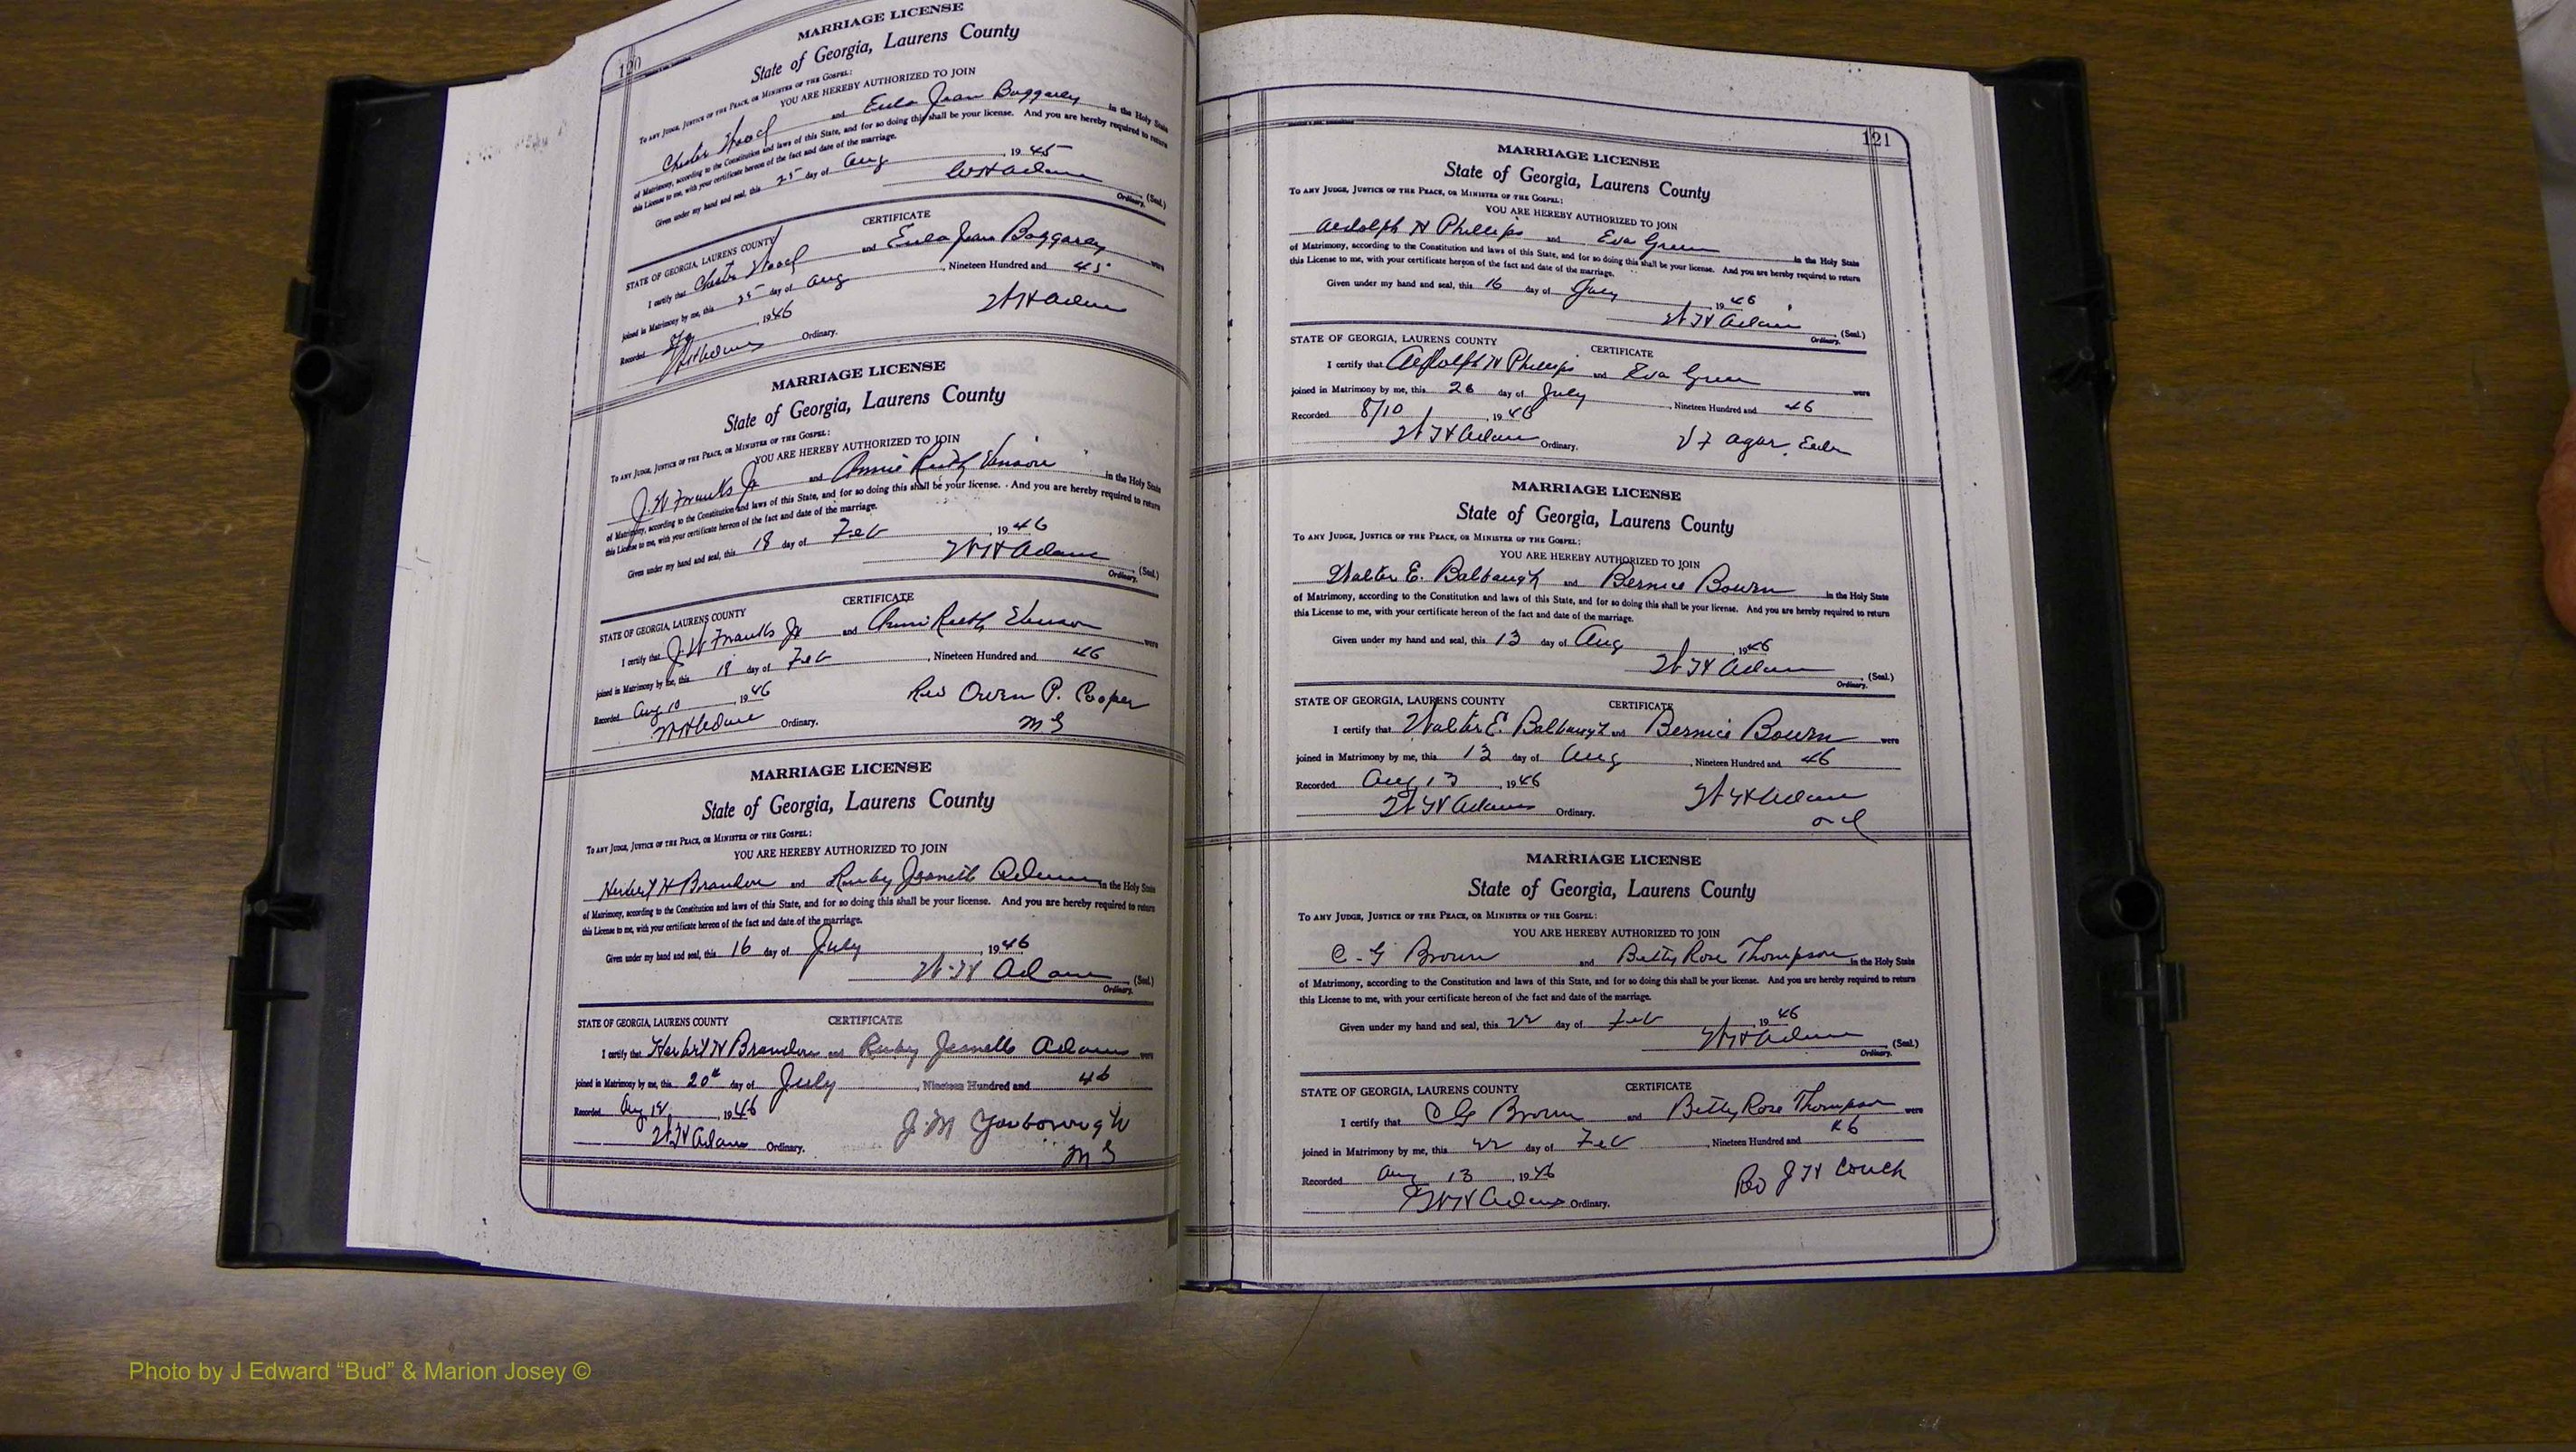 120
MARRIAGE LICENSE
State of Georgia, Laurens County
To any Judge, Justice of the Peace, or Minister of the Gospel:
YOU ARE HEREBY AUTHORIZED TO JOIN
Chester and Eula Jean Baggarly in the Holy State
of Matrimony, according to the Constitution and laws of this State, and for so doing this shall be your license. And you are hereby required to return
this License to me, with your certificate hereon of the fact and date of the marriage.
Given under my hand and seal, this 25 day of Aug, 1945
W H Adams (Seal.)
Ordinary.
CERTIFICATE
STATE OF GEORGIA, LAURENS COUNTY
I certify that Chester and Eula Jean Baggarly were
joined in Matrimony by me, this 25 day of Aug, Nineteen Hundred and 45
Recorded 8/9, 1946 W H Adams
W H Adams Ordinary.
MARRIAGE LICENSE
State of Georgia, Laurens County
To any Judge, Justice of the Peace, or Minister of the Gospel:
YOU ARE HEREBY AUTHORIZED TO JOIN
J. W Franks Jr and Annie Ruth in the Holy State
of Matrimony, according to the Constitution and laws of this State, and for so doing this shall be your license. And you are hereby required to return
this License to me, with your certificate hereon of the fact and date of the marriage.
Given under my hand and seal, this 18 day of Feb, 1946
W H Adams (Seal.)
Ordinary.
CERTIFICATE
STATE OF GEORGIA, LAURENS COUNTY
I certify that J. W Franks Jr and Annie Ruth were
joined in Matrimony by me, this 18 day of Feb, Nineteen Hundred and 46
Recorded Aug 10, 1946 Rev Owen P. Cooper
W H Adams Ordinary. M G
MARRIAGE LICENSE
State of Georgia, Laurens County
To any Judge, Justice of the Peace, or Minister of the Gospel:
YOU ARE HEREBY AUTHORIZED TO JOIN
Herbert H Brandon and Ruby Jeanette Adams in the Holy State
of Matrimony, according to the Constitution and laws of this State, and for so doing this shall be your license. And you are hereby required to return
this License to me, with your certificate hereon of the fact and date of the marriage.
Given under my hand and seal, this 16 day of July, 1946
W. H Adams (Seal.)
Ordinary.
CERTIFICATE
STATE OF GEORGIA, LAURENS COUNTY
I certify that Herbert H Brandon and Ruby Jeanette Adams were
joined in Matrimony by me, this 20th day of July, Nineteen Hundred and 46
Recorded Aug 12, 1946 J. M Yarborough
W H Adams Ordinary. M G
121
MARRIAGE LICENSE
State of Georgia, Laurens County
To any Judge, Justice of the Peace, or Minister of the Gospel:
YOU ARE HEREBY AUTHORIZED TO JOIN
Aldolph H Phillips and Eva Green in the Holy State
of Matrimony, according to the Constitution and laws of this State, and for so doing this shall be your license. And you are hereby required to return
this License to me, with your certificate hereon of the fact and date of the marriage.
Given under my hand and seal, this 16 day of July, 1946
W H Adams (Seal.)
Ordinary.
STATE OF GEORGIA, LAURENS COUNTY CERTIFICATE
I certify that Aldolph H Phillips and Eva Green were
joined in Matrimony by me, this 26 day of July, Nineteen Hundred and 46
Recorded 8/10, 1946
W H Adams Ordinary. Agar, Elder
MARRIAGE LICENSE
State of Georgia, Laurens County
To any Judge, Justice of the Peace, or Minister of the Gospel:
YOU ARE HEREBY AUTHORIZED TO JOIN
Walter E. Balbaugh and Bernice Bourn in the Holy State
of Matrimony, according to the Constitution and laws of this State, and for so doing this shall be your license. And you are hereby required to return
this License to me, with your certificate hereon of the fact and date of the marriage.
Given under my hand and seal, this 13 day of Aug, 1946
W H Adams (Seal.)
Ordinary.
STATE OF GEORGIA, LAURENS COUNTY CERTIFICATE
I certify that Walter E. Balbaugh and Bernice Bourn were
joined in Matrimony by me, this 13 day of Aug, Nineteen Hundred and 46
Recorded Aug 13, 1946 W H Adams
W H Adams Ordinary. Ord
MARRIAGE LICENSE
State of Georgia, Laurens County
To any Judge, Justice of the Peace, or Minister of the Gospel:
YOU ARE HEREBY AUTHORIZED TO JOIN
C. G Brown and Betty Rose Thompson in the Holy State
of Matrimony, according to the Constitution and laws of this State, and for so doing this shall be your license. And you are hereby required to return
this License to me, with your certificate hereon of the fact and date of the marriage.
Given under my hand and seal, this 22 day of Feb, 1946
W H Adams (Seal.)
Ordinary.
STATE OF GEORGIA, LAURENS COUNTY CERTIFICATE
I certify that C G Brown and Betty Rose Thompson were
joined in Matrimony by me, this 22 day of Feb, Nineteen Hundred and 46
Recorded Aug 13, 1946 Rev J H Couch
W H Adams Ordinary.
Photo by J Edward “Bud” & Marion Josey ©